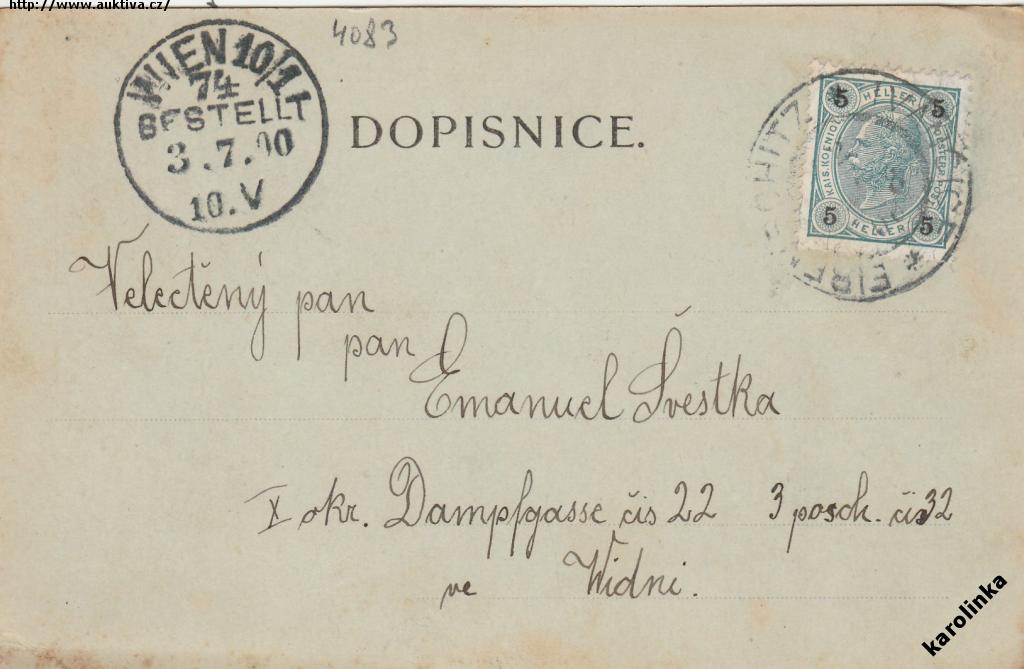 http://www.auktiva.cz/
4083
WIEN 10/1
74
BESTELLT
3.7.00
10.V
DOPISNICE.
5 HELLER 5
KAIS. KOENIGL. OESTERR. POST
5 HELLER 5
Velectěný pan
pan
Emanuel Švestka
X okr. Dampfgasse čís 22 3 posch. čís 32
ve Widni.
karolinka